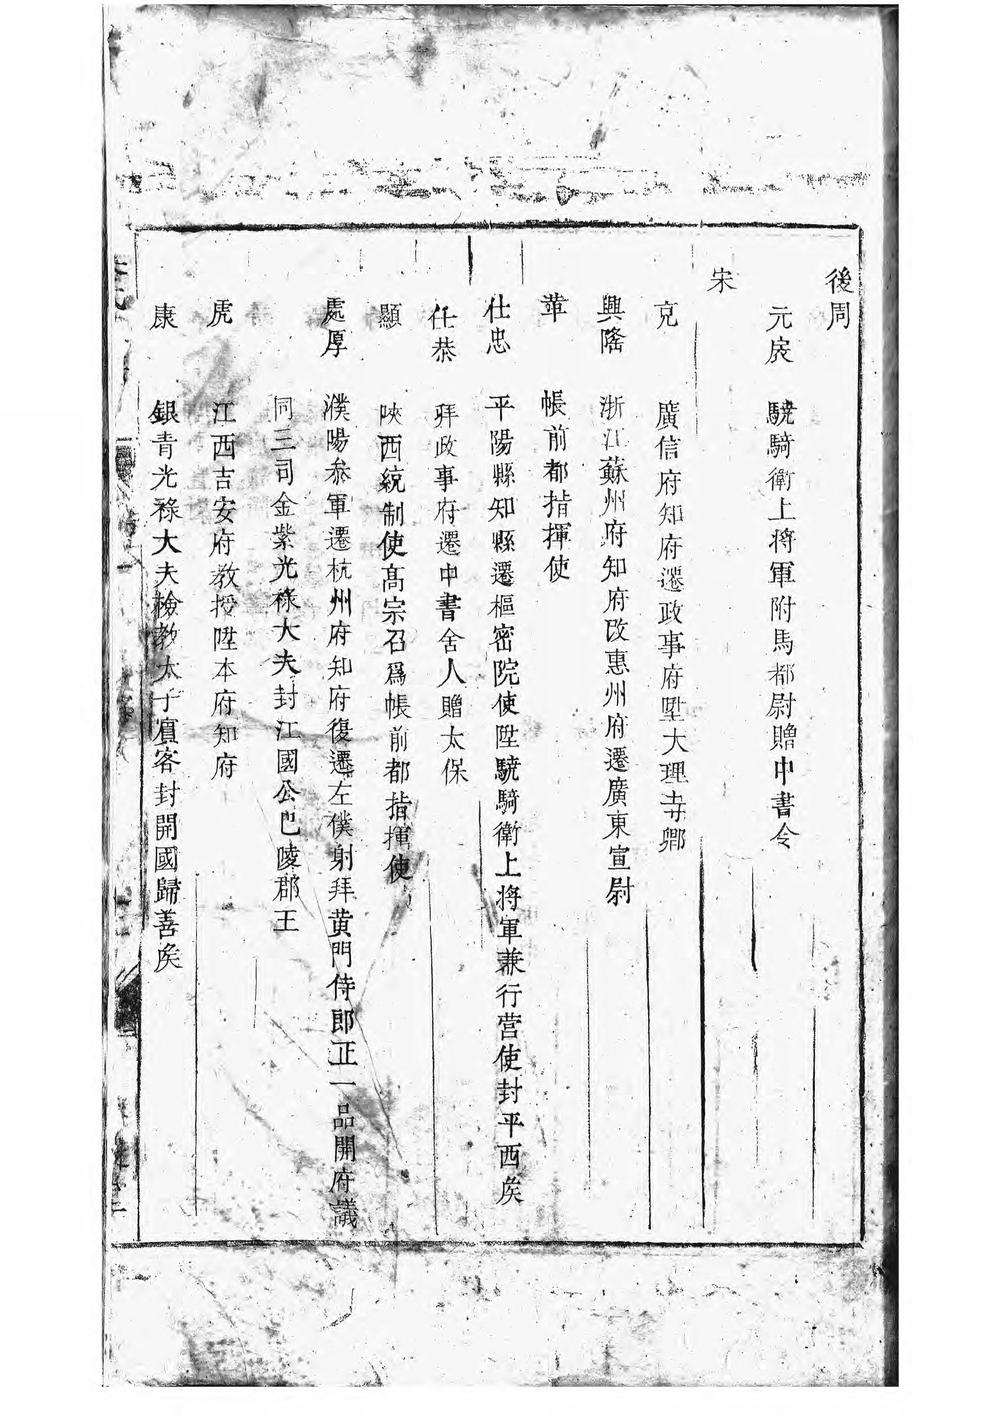 後周
元宬 驍騎衛上將軍附馬都尉贈中書令
宋
克 廣信府知府遷政事府陞大理寺卿
興隆 浙江蘇州府知府改惠州府遷廣東宣尉
華 帳前都指揮使
仕忠 平陽縣知縣遷樞密院使陞驍騎衛上將軍兼行營使封平西矦
任恭 拜政事府遷中書舍人贈太保
顯 陜西統制使髙宗召爲帳前都指揮使
處厚 濮陽叅軍遷杭州府知府復遷左僕射拜黄門侍郎正一品開府議
同三司金紫光祿大夫封江國公巴陵郡王
虎 江西吉安府教授陞本府知府
康 銀青光祿大夫檢教太子賔客封開國歸善矦